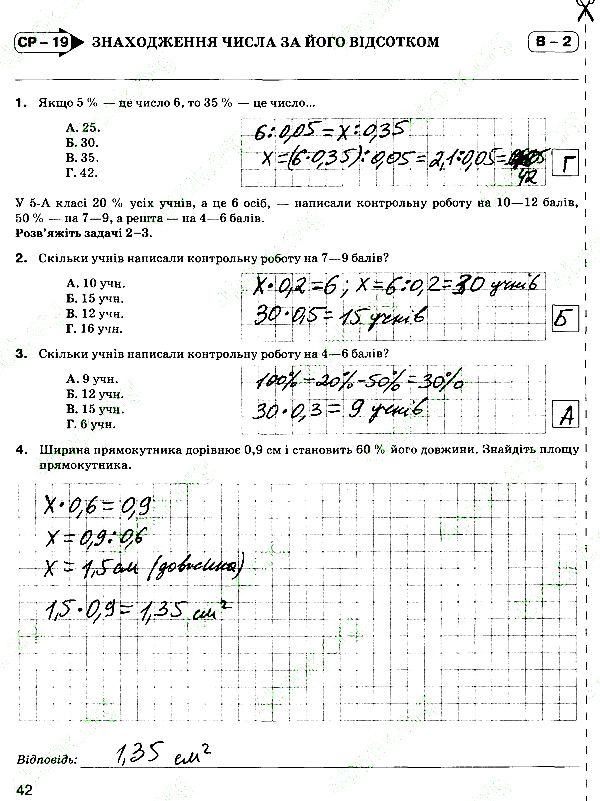 СР – 19 ЗНАХОДЖЕННЯ ЧИСЛА ЗА ЙОГО ВІДСОТКОМ В – 2
1. Якщо 5 % — це число 6, то 35 % — це число...
А. 25.
Б. 30.
В. 35.
Г. 42.
6:0,05 = x:0,35
x=(6·0,35):0,05=2,1:0,05=
42
Г
У 5-А класі 20 % усіх учнів, а це 6 осіб, — написали контрольну роботу на 10—12 балів,
50 % — на 7—9, а решта — на 4—6 балів.
Розв'яжіть задачі 2–3.
2. Скільки учнів написали контрольну роботу на 7—9 балів?
А. 10 учн.
Б. 15 учн.
В. 12 учн.
Г. 16 учн.
x·0,2=6; x=6:0,2=30 учнів
30·0,5=15 учнів
Б
3. Скільки учнів написали контрольну роботу на 4—6 балів?
А. 9 учн.
Б. 12 учн.
В. 15 учн.
Г. 6 учн.
100%-20%-50%=30%
30·0,3=9 учнів
А
4. Ширина прямокутника дорівнює 0,9 см і становить 60 % його довжини. Знайдіть площу
прямокутника.
x·0,6=0,9
x=0,9:0,6
x=1,5см (довжина)
1,5·0,9=1,35 см²
Відповідь: 1,35 см²
42